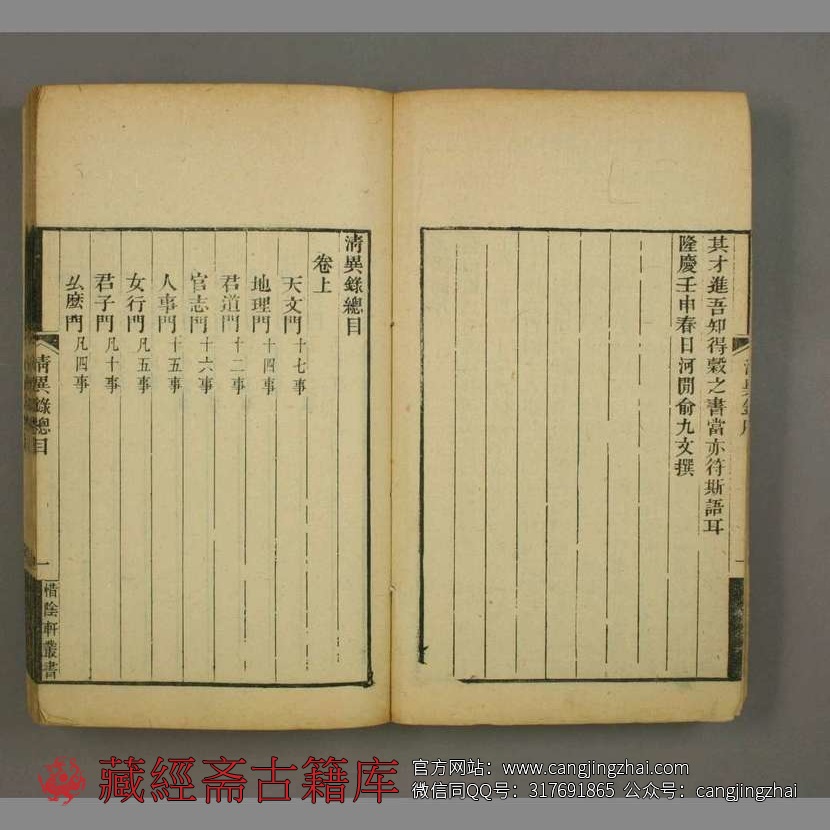 其才進吾知得穀之書當亦符斯語耳
隆慶壬申春日河間俞允文撰
清異錄總目
卷上
天文門十七事
地理門十四事
君道門十二事
官志門十六事
人事門十五事
女行門凡五事
君子門凡十事
么麼門凡四事
清異錄總目
一
惜陰軒叢書
藏經斋古籍库
官方网站：www.cangjingzhai.com
微信同QQ号：317691865 公众号：cangjingzhai